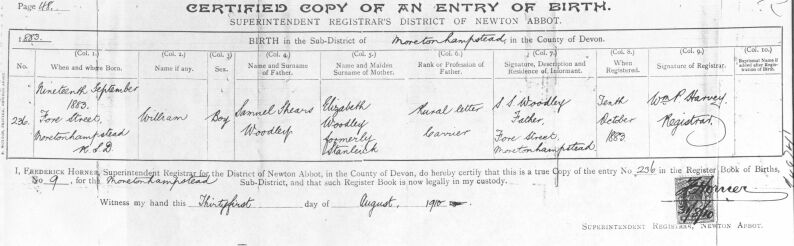 Page 48.
CERTIFIED COPY OF AN ENTRY OF BIRTH.
SUPERINTENDENT REGISTRAR'S DISTRICT OF NEWTON ABBOT.
1883. BIRTH in the Sub-District of Moretonhampstead, in the County of Devon.
(Col. 1.) (Col. 2.) (Col. 3) (Col. 4.) (Col. 5.) (Col. 6.) (Col. 7.) (Col. 8.) (Col. 9.) (Col. 10.)
No. When and where Born. Name if any. Sex. Name and Surname of Father. Name and Maiden Surname of Mother. Rank or Profession of Father. Signature, Description and Residence of Informant. When Registered. Signature of Registrar. Baptismal Name if added after Registration of Birth.
236 Nineteenth September 1883. Fore Street, Moretonhampstead R.S.D. William Boy Samuel Shears Woodley Elizabeth Woodley formerly Stanlick Rural letter Carrier S. S. Woodley Father, Fore Street, Moretonhampstead Tenth October 1883. Wm P. Harvey Registrar
I, FREDERICK HORNER, Superintendent Registrar for the District of Newton Abbot, in the County of Devon, do hereby certify that this is a true Copy of the entry No. 236 in the Register Book of Births,
No 9, for the Moretonhampstead Sub-District, and that such Register Book is now legally in my custody.
Witness my hand this Thirtyfirst day of August, 1910
Horner
SUPERINTENDENT REGISTRAR, NEWTON ABBOT.